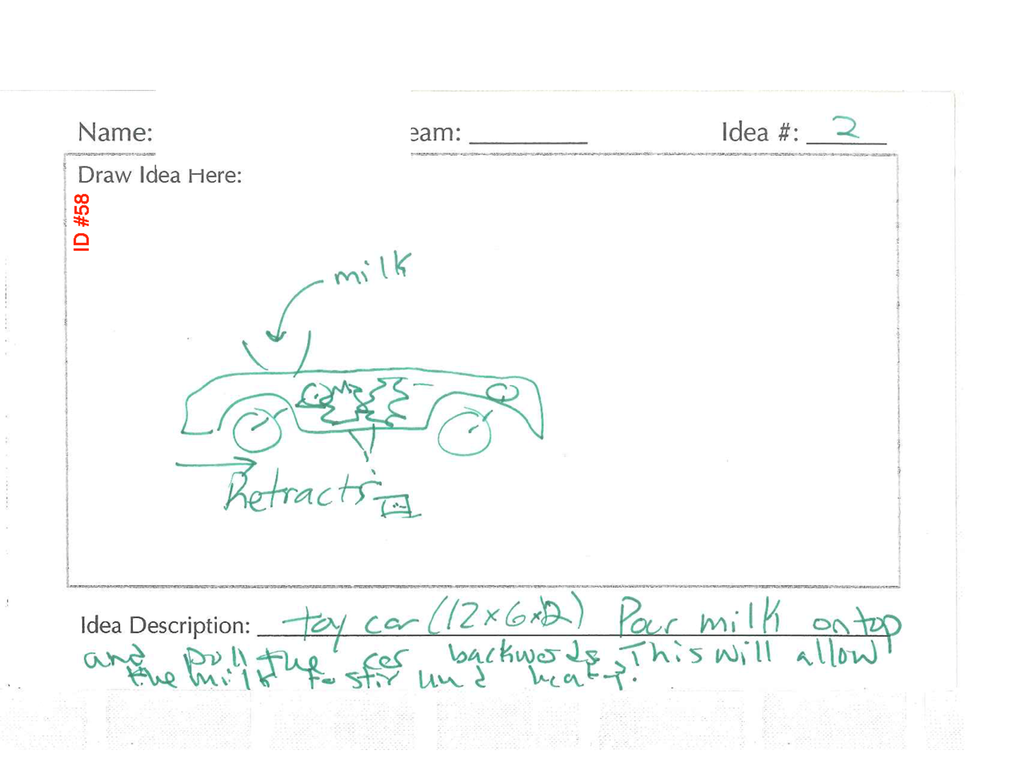 Name: eam: Idea #: 2
Draw Idea Here:
ID #58
milk
Retracts
Idea Description: toy car (12x6x2) Pour milk on top
and pull the car backwords. This will allow
the milk to stir und heat.